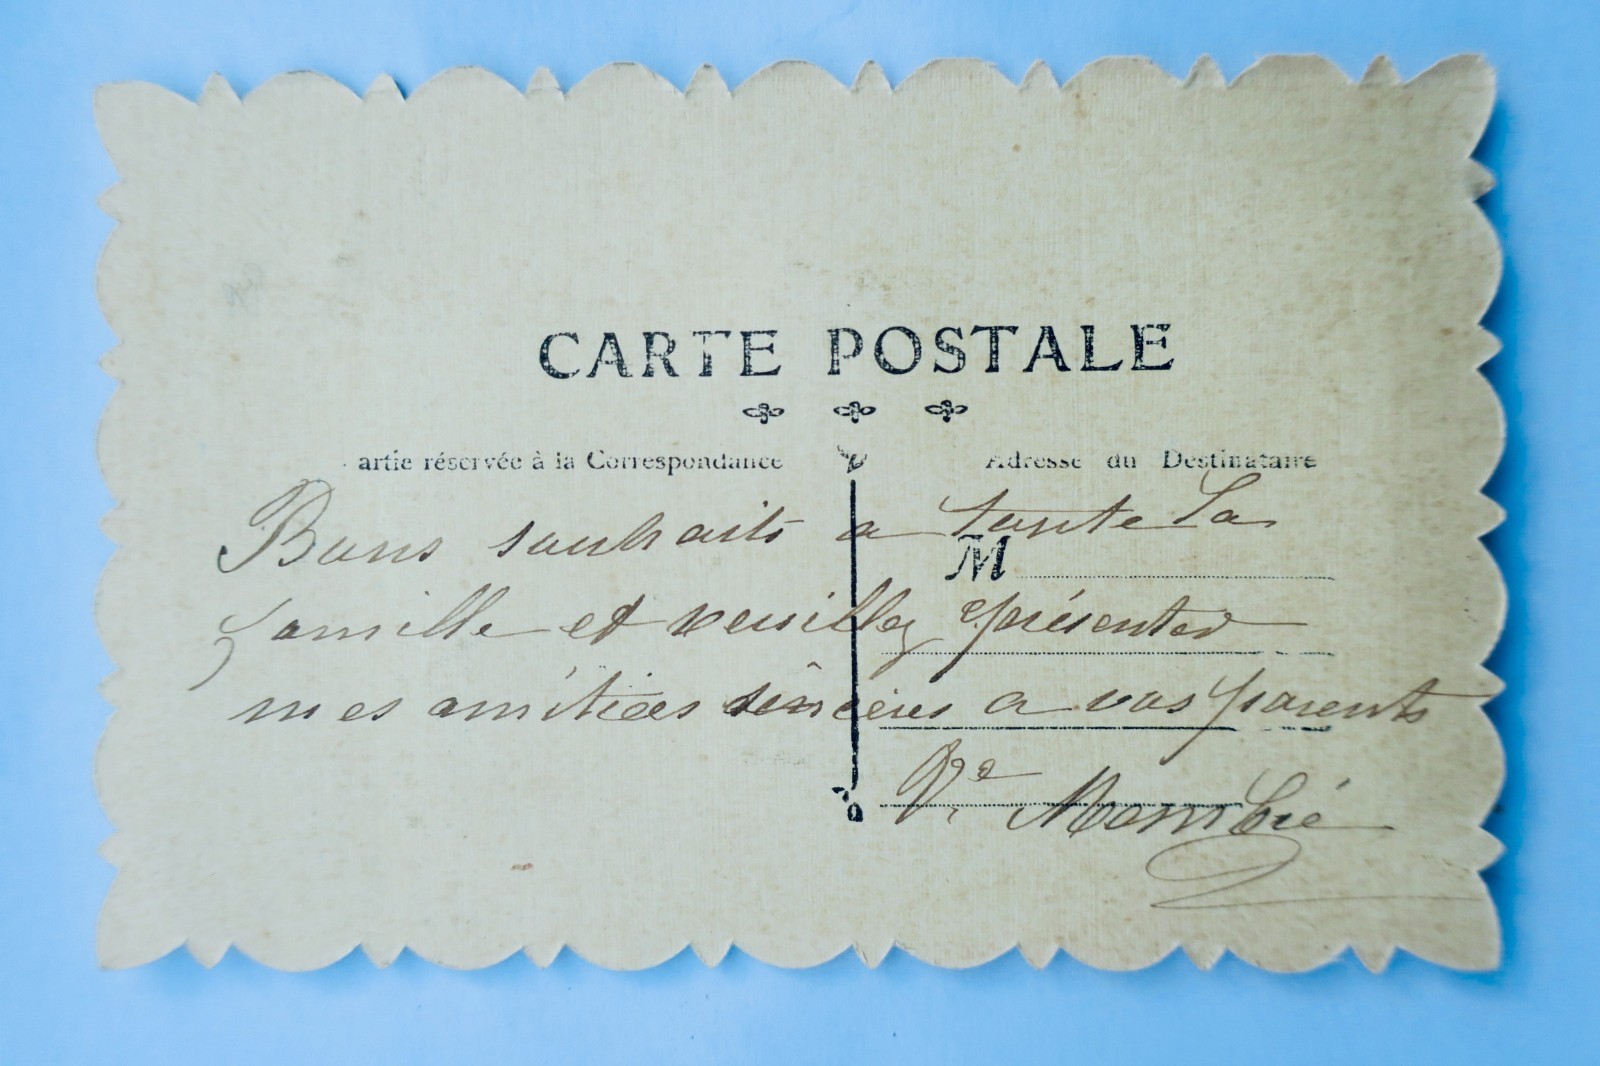 CARTE POSTALE
artie réservée à la Correspondance
Adresse du Destinataire
M
Bons souhaits a toute la
famille et veuillez présenter
mes amitiées sincères a vos parents
Vve